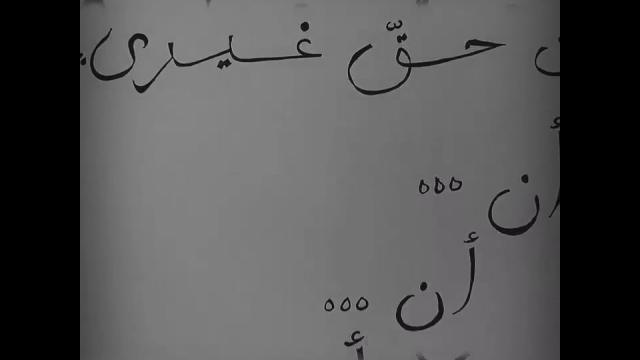 حقّ غيري
أن ...
أن ...